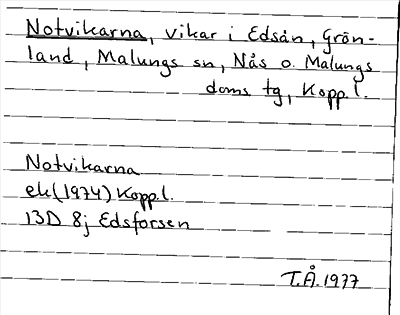 Notvikarna, vikar i Edsån, Grön-
land, Malungs sn, Nås o. Malungs
doms tg, Kopp.l.
Notvikarna
ek(1974) Kopp.l.
13D 8j Edsforsen
T.Å.1977